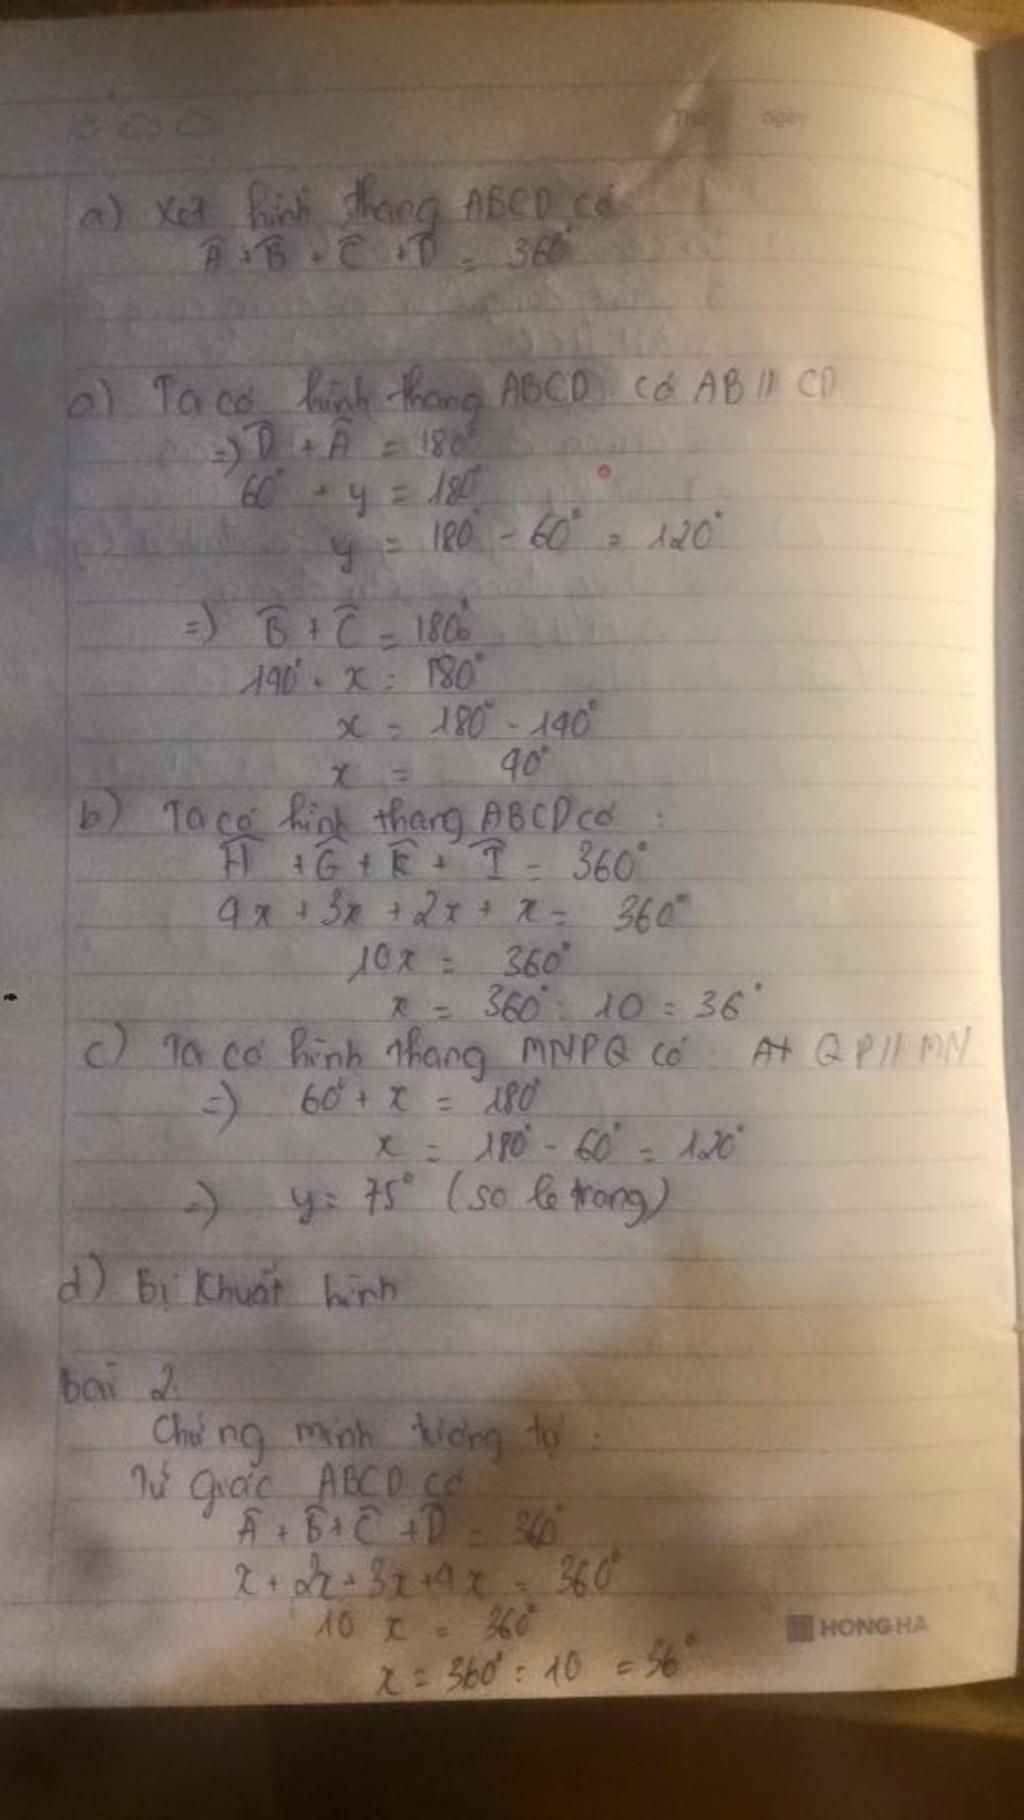 Thứ ngày
a) Xét hình thang ABCD có
Â + B̂ + Ĉ + D̂ = 360°
a) Ta có hình thang ABCD có AB // CD
=) D̂ + Â = 180°
60° + y = 180°
y = 180° - 60° = 120°
=) B̂ + Ĉ = 180°
140° + x = 180°
x = 180° - 140°
x = 40°
b) Ta có hình thang ABCD có :
Ĥ + Ĝ + K̂ + Î = 360°
4x + 3x + 2x + x = 360°
10x = 360°
x = 360° : 10 = 36°
c) Ta có hình thang MNPQ có : QP // MN
=) 60° + x = 180°
x = 180° - 60° = 120°
=) y = 75° (so le trong)
d) Bị khuất hình
bài 2.
Chứng minh tương tự :
Tứ giác ABCD có
Â + B̂ + Ĉ + D̂ = 360°
x + 2x + 3x + 4x = 360°
10 x = 360°
x = 360° : 10 = 36°
HONG HA